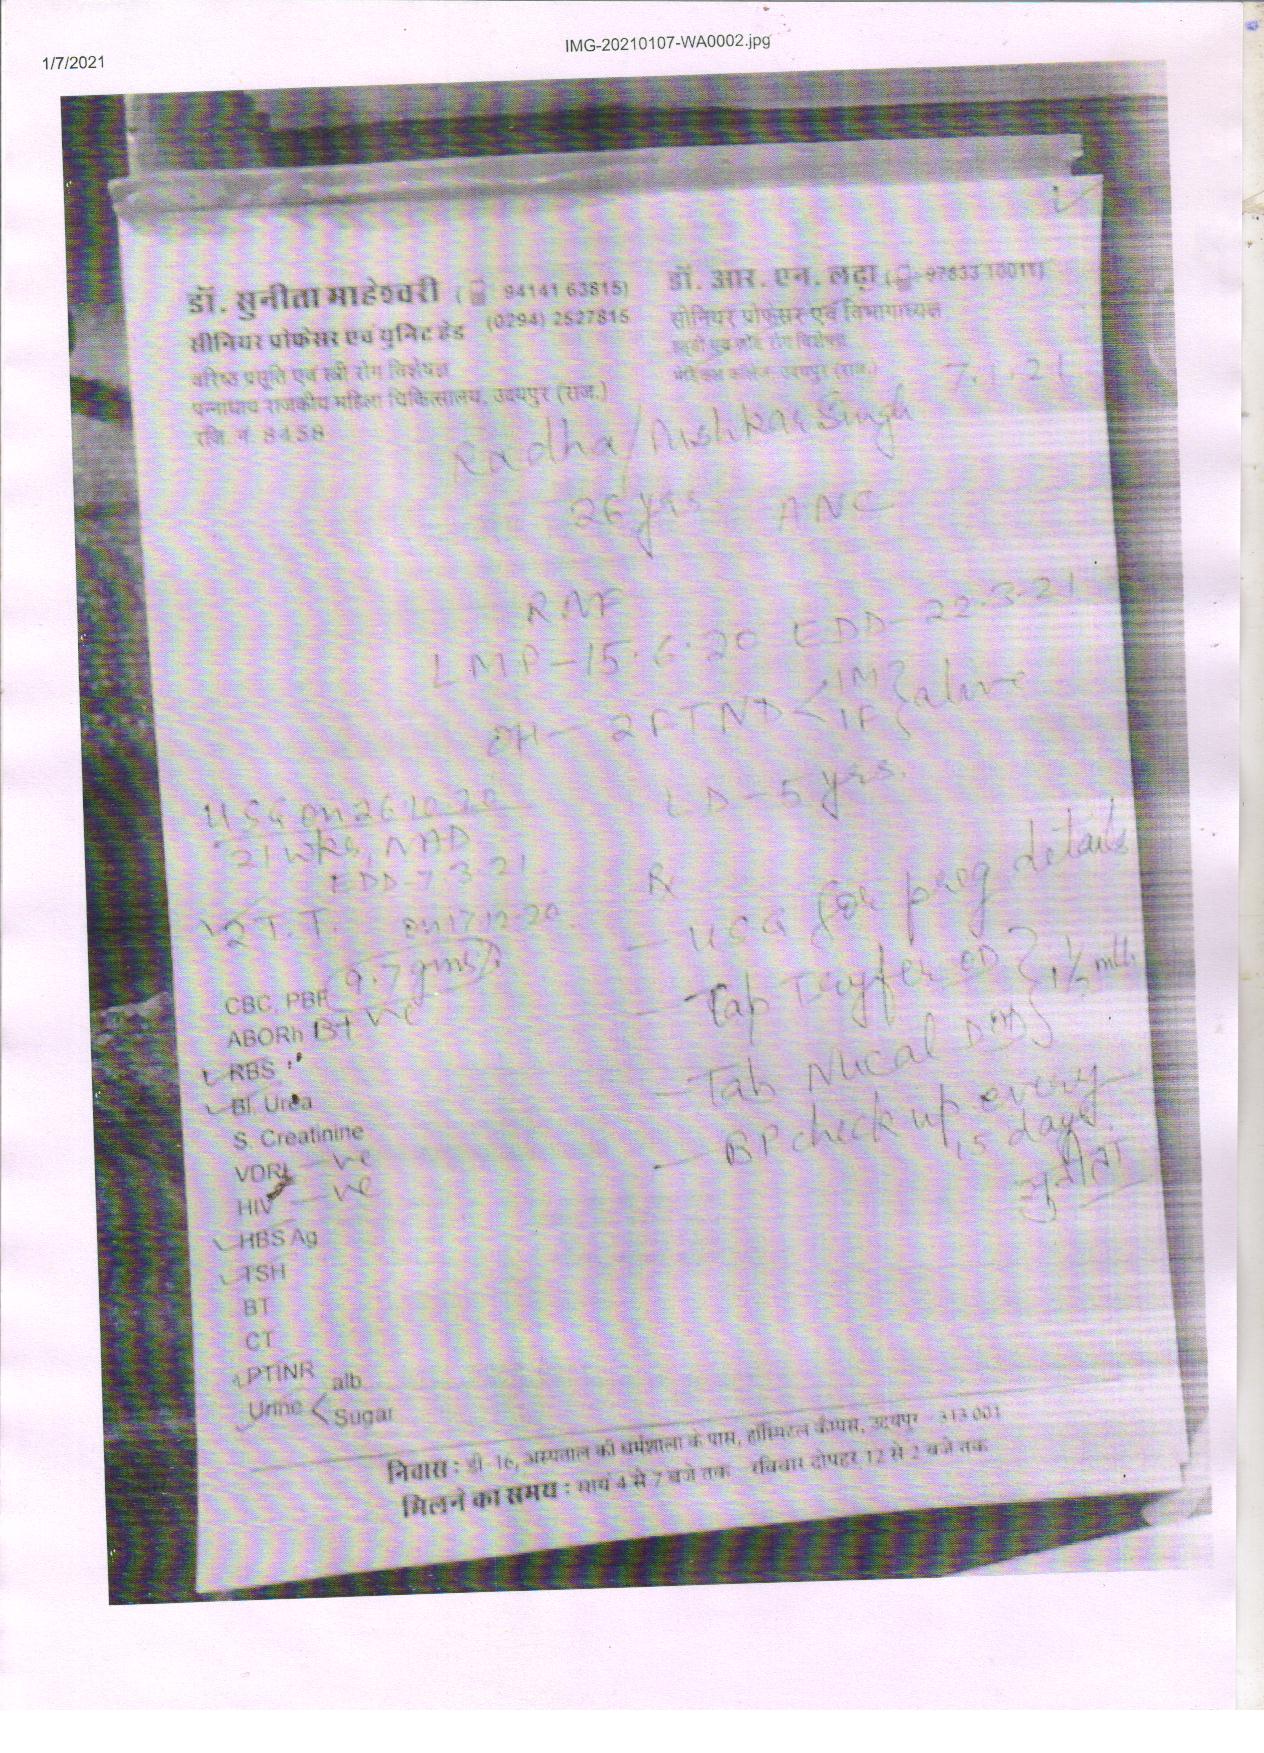 1/7/2021
IMG-20210107-WA0002.jpg
डॉ. सुनीता माहेश्वरी ( 94141 63815)
(0294) 2527815
सीनियर प्रोफेसर एवं युनिट हेड
वरिष्ठ प्रसूति एवं स्त्री रोग विशेषज्ञ
पन्नाधाय राजकीय महिला चिकित्सालय, उदयपुर (राज.)
रजि. नं. 8458
डॉ. आर. एन. लढ़ा ( 97833 10011)
सीनियर प्रोफेसर एवं विभागाध्यक्ष
उदयपुर (राज.)
7.1.21
Radha/ Singh
26 yrs ANC
LMP-15.6.20 EDD-22.3.21
OH- 2FTND < 1M 1F } alive
LD-5 yrs.
USG on 26.10.20
21 wks, NAD
EDD-7.3.21
2 T.T. on 17.12.20
CBC, PBF 9.7 gms%
ABORh B+ve
RBS
Bl. Urea
S. Creatinine
VDRL -ve
HIV -ve
HBS Ag
TSH
BT
CT
PTINR
Urine < alb
Sugar
Rx
- USG for preg details
- Tab OD } 1½ mth
- Tab Nucal
- BP check up every
15 days
सुनीता
निवास : डी-16, अस्पताल की धर्मशाला के पास, हॉस्पिटल कैंपस, उदयपुर - 313 001
मिलने का समय : सायं 4 से 7 बजे तक रविवार दोपहर 12 से 2 बजे तक